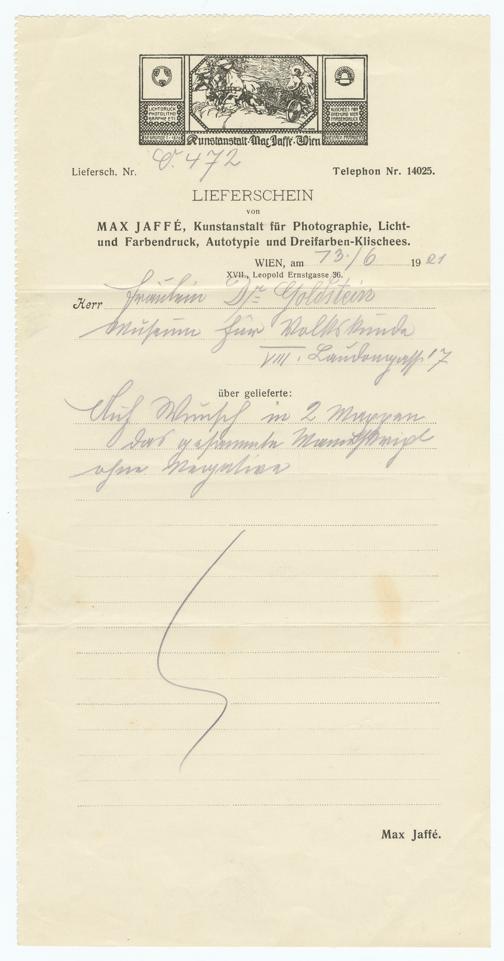 LICHTDRUCK
PHOTOLITHO
GRAPHIE ETC.
KLISCHEES FÜR
DREI UND VIER
FARBENDRUCK
Kunstanstalt Max Jaffé Wien
Liefersch. Nr. 472
Telephon Nr. 14025.
LIEFERSCHEIN
von
MAX JAFFÉ, Kunstanstalt für Photographie, Licht-
und Farbendruck, Autotypie und Dreifarben-Klischees.
WIEN, am 13./6 1921
XVII., Leopold Ernstgasse 36.
Herr Fräulein Dr Goldstein
Museum für Volkskunde
VIII. Laudongasse 17
über gelieferte:
Auf Wunsch in 2 Mappen
das gesammte Manuskript
ohne Negative
Max Jaffé.